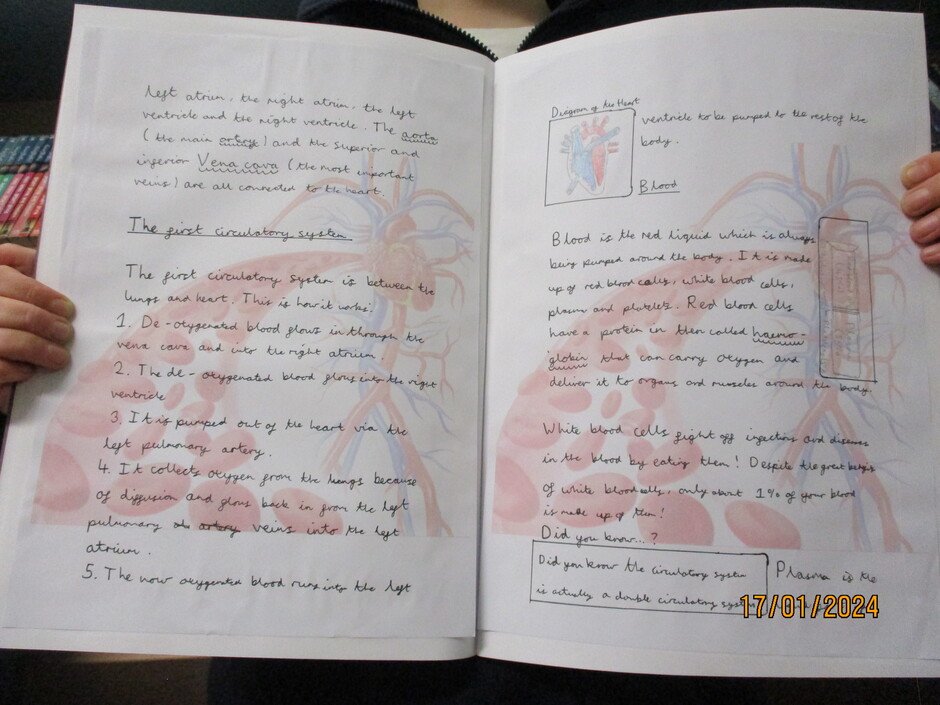 left atrium, the right atrium, the left
ventricle and the right ventricle. The aorta
(the main artery) and the superior and
inferior Vena cava (the most important
veins) are all connected to the heart.
The first circulatory system
The first circulatory system is between the
lungs and heart. This is how it works:
1. De-oxygenated blood flows in through the
vena cava and into the right atrium.
2. The de-oxygenated blood flows into the right
ventricle
3. It is pumped out of the heart via the
left pulmonary artery.
4. It collects oxygen from the lungs because
of diffusion and flows back in from the left
pulmonary artery veins into the left
atrium.
5. The now oxygenated blood runs into the left
Diagram of the Heart
ventricle to be pumped to the rest of the
body.
Blood
Blood is the red liquid which is always
being pumped around the body. It is made
up of red blood cells, white blood cells,
plasma and platelets. Red blood cells
have a protein in them called haemo-
globin that can carry oxygen and
deliver it to organs and muscles around the body.
White blood cells fight off infections and diseases
in the blood by eating them! Despite the great
of white blood cells, only about 1% of your blood
is made up of them!
Did you know...?
Did you know the circulatory system
is actually a double circulatory system
Plasma is the
17/01/2024